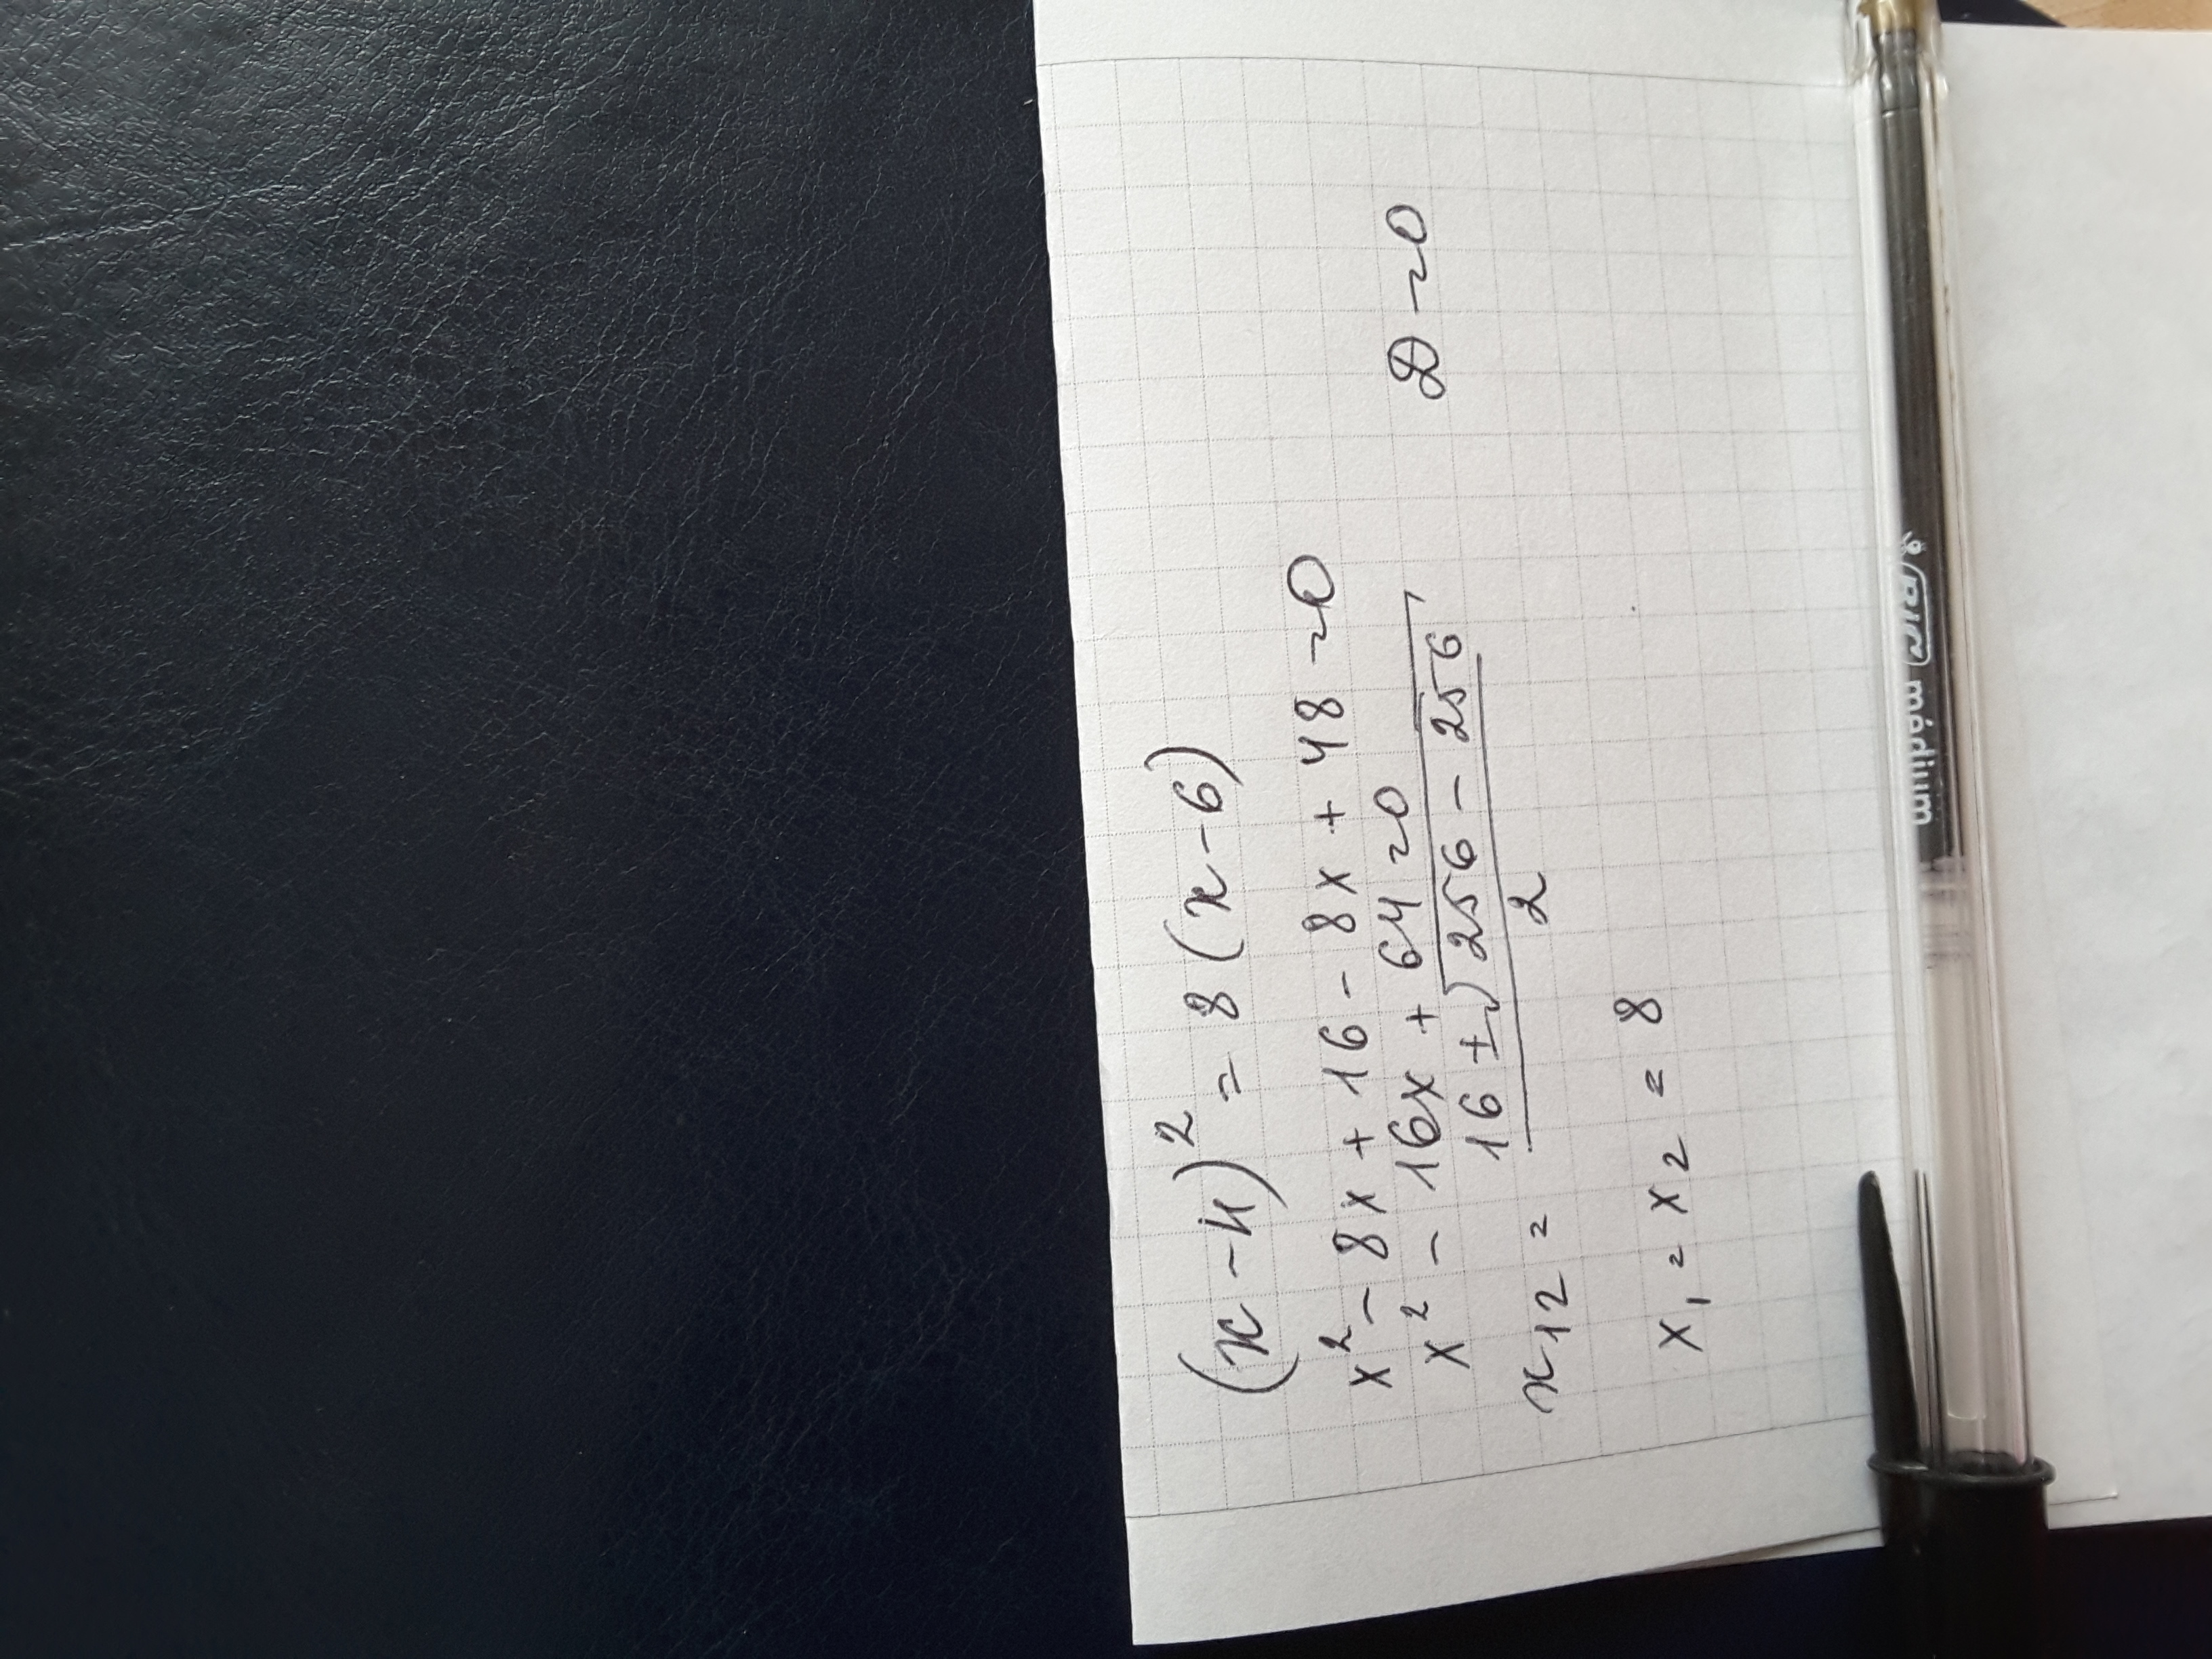 (x-4)² = 8(x-6)
x² - 8x + 16 - 8x + 48 = 0
x² - 16x + 64 = 0 D = 0
x₁₂ = (16 ± √(256 - 256))/2
x₁ = x₂ = 8
BIC médium